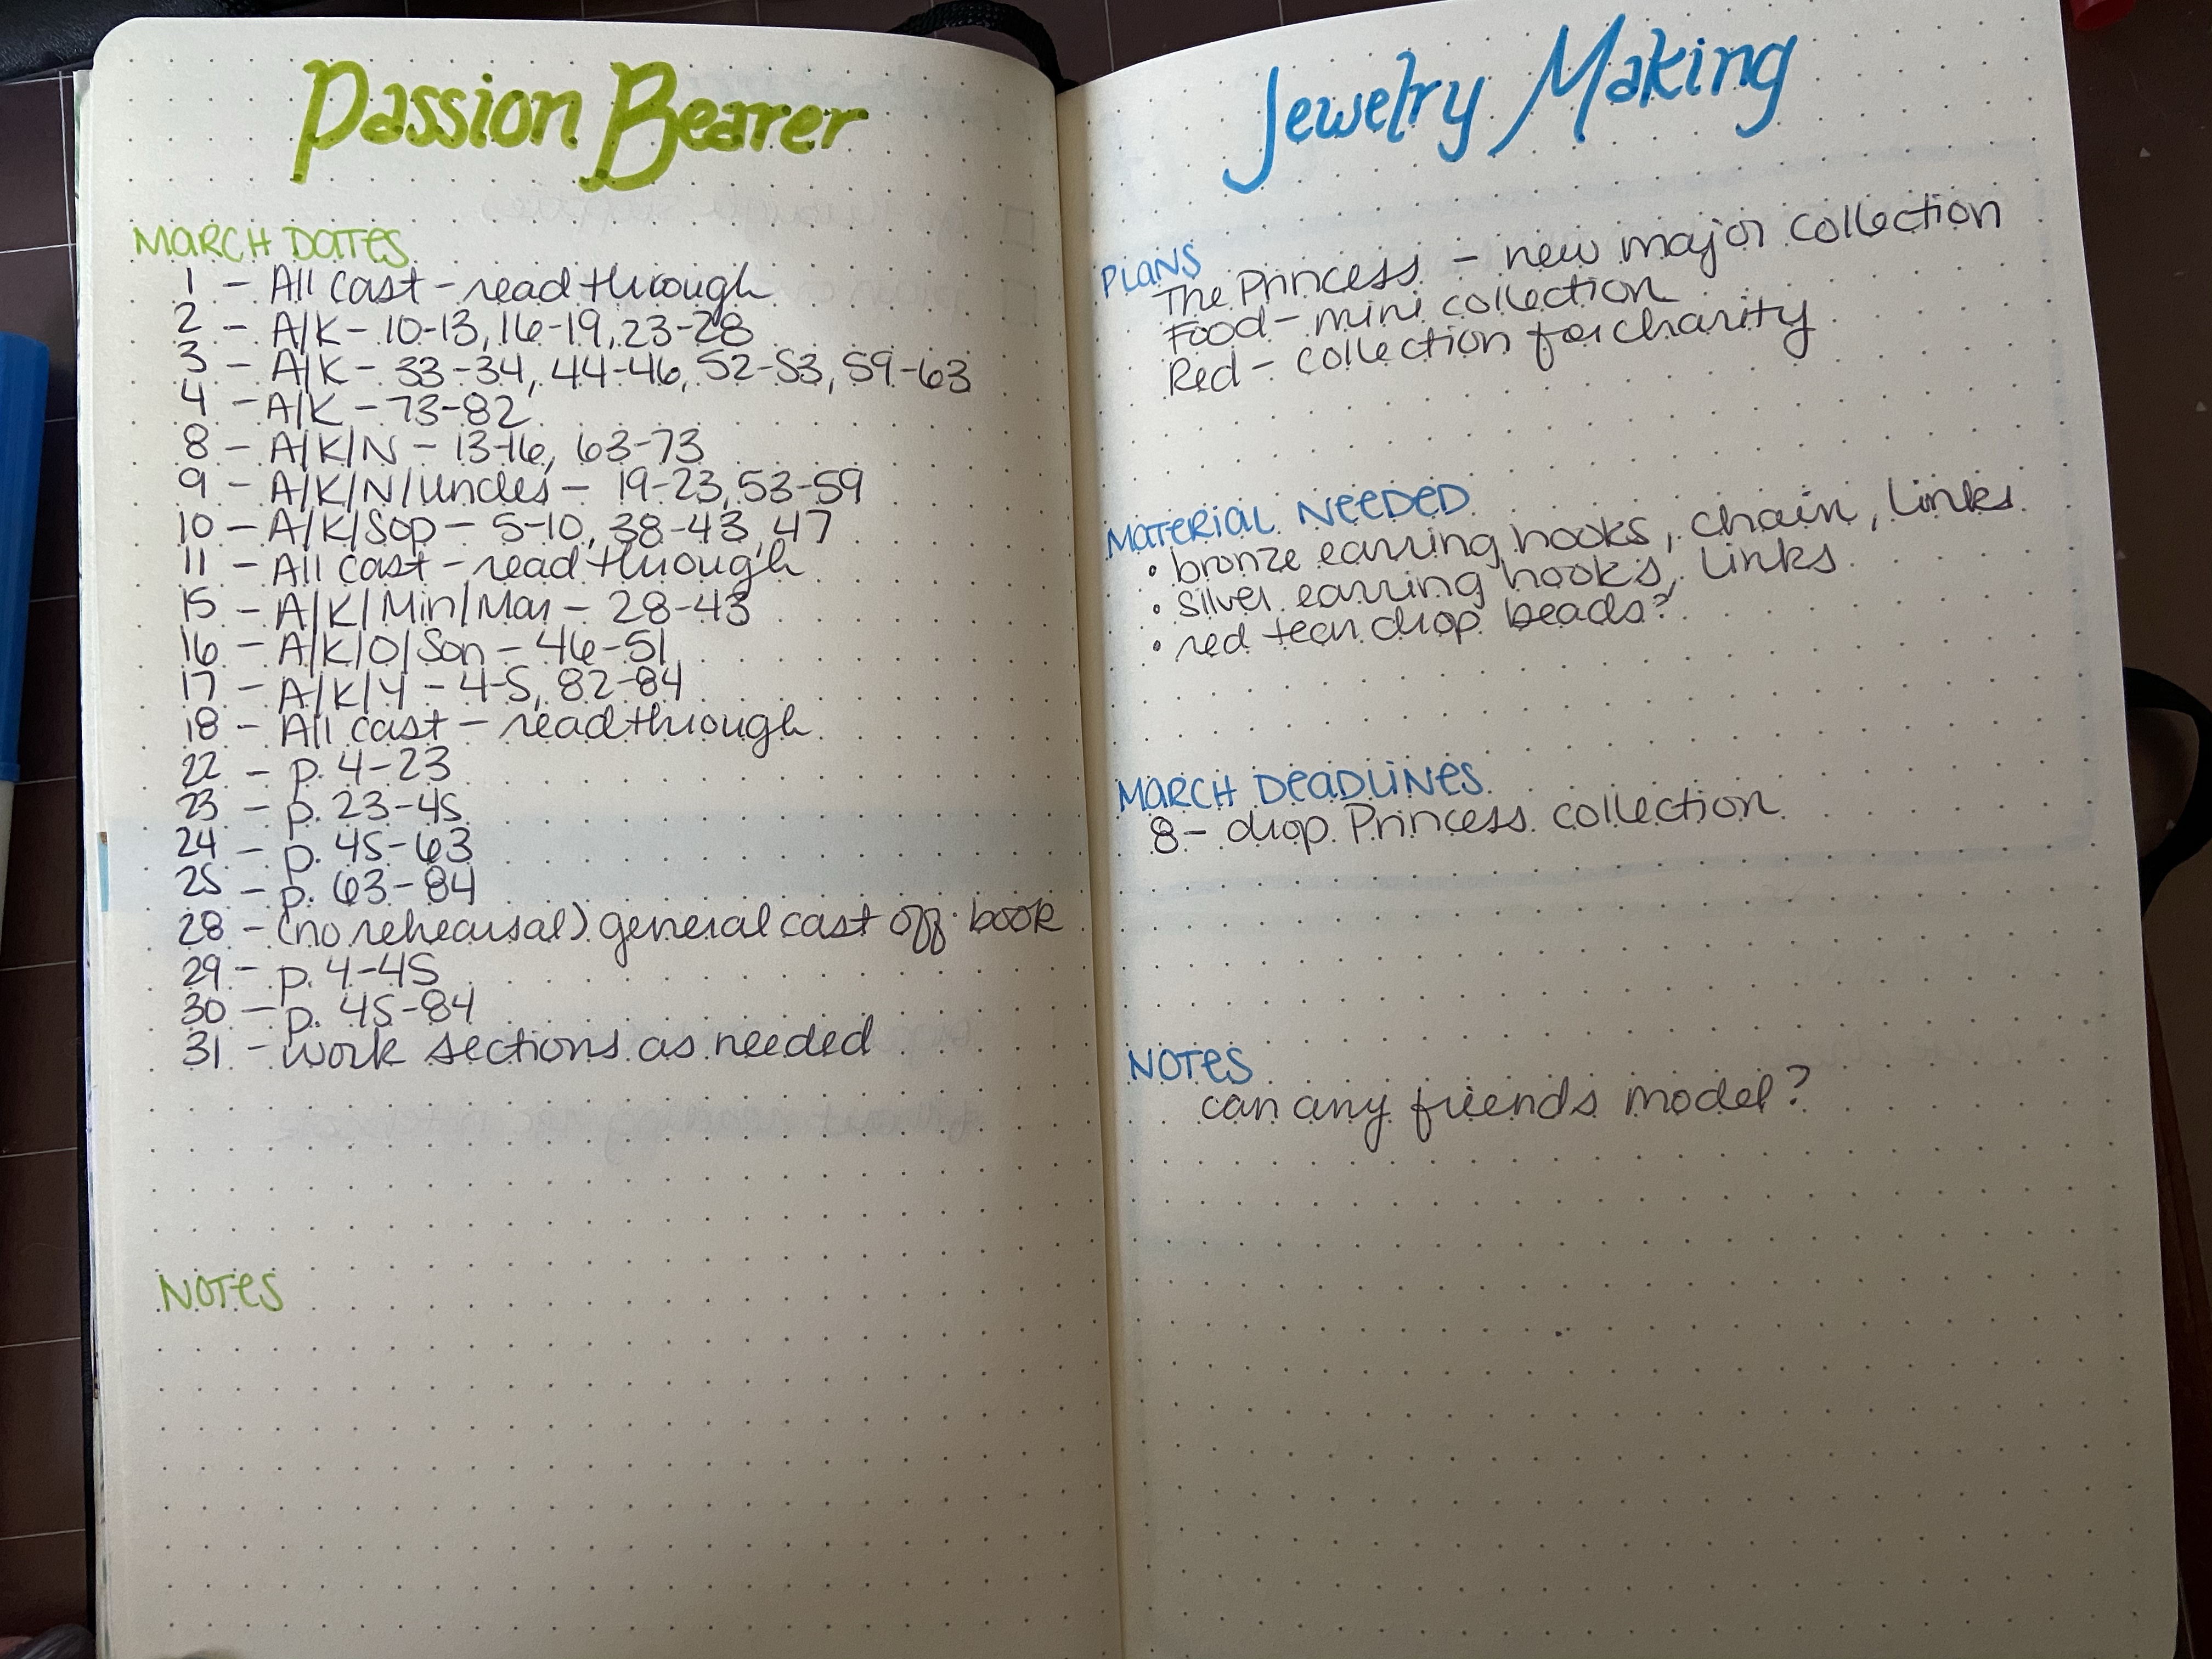 Passion Bearer
MARCH DATES
1 - All cast - read through
2 - A/K - 10-13, 16-19, 23-28
3 - A/K - 33-34, 44-46, 52-53, 59-63
4 - A/K - 73-82
8 - A/K/N - 13-16, 63-73
9 - A/K/N/Uncles - 19-23, 53-59
10 - A/K/Sop - 5-10, 38-43, 47
11 - All cast - read through
15 - A/K/Min/Mar - 28-43
16 - A/K/O/Son - 46-51
17 - A/K/Y - 4-5, 82-84
18 - All cast - read through
22 - p. 4-23
23 - p. 23-45
24 - p. 45-63
25 - p. 63-84
28 - (no rehearsal) general cast off book
29 - p. 4-45
30 - p. 45-84
31 - work sections as needed
NOTES
Jewelry Making
PLANS
The Princess - new major collection
Food - mini collection
Red - collection for charity
MATERIAL NEEDED
• bronze earring hooks, chain, links
• silver earring hooks, links
• red tear drop beads?
MARCH DEADLINES
8 - drop Princess collection
NOTES
can any friends model?